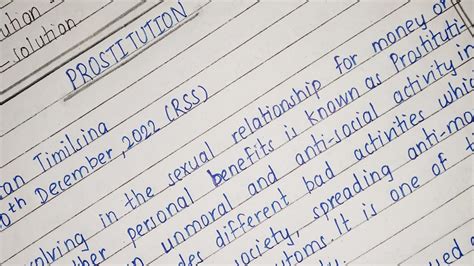 ution
solution
PROSTITUTION
Timilsina
December, 2022 (RSS)
in the sexual relationship for money or
personal benefits is known as Prostituti
unmoral and anti-social activity in
different bad activities whic
society, spreading anti-ma
It is one of t